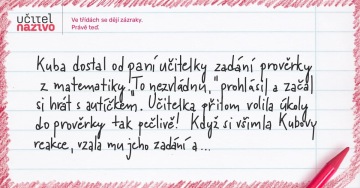 učitel
naživo
Ve třídách se dějí zázraky.
Právě teď.
Kuba dostal od paní učitelky zadání prověrky
z matematiky. "To nezvládnu," prohlásil a začal
si hrát s autíčkem. Učitelka přitom volila úkoly
do prověrky tak pečlivě! Když si všimla Kubovy
reakce, vzala mu jeho zadání a...